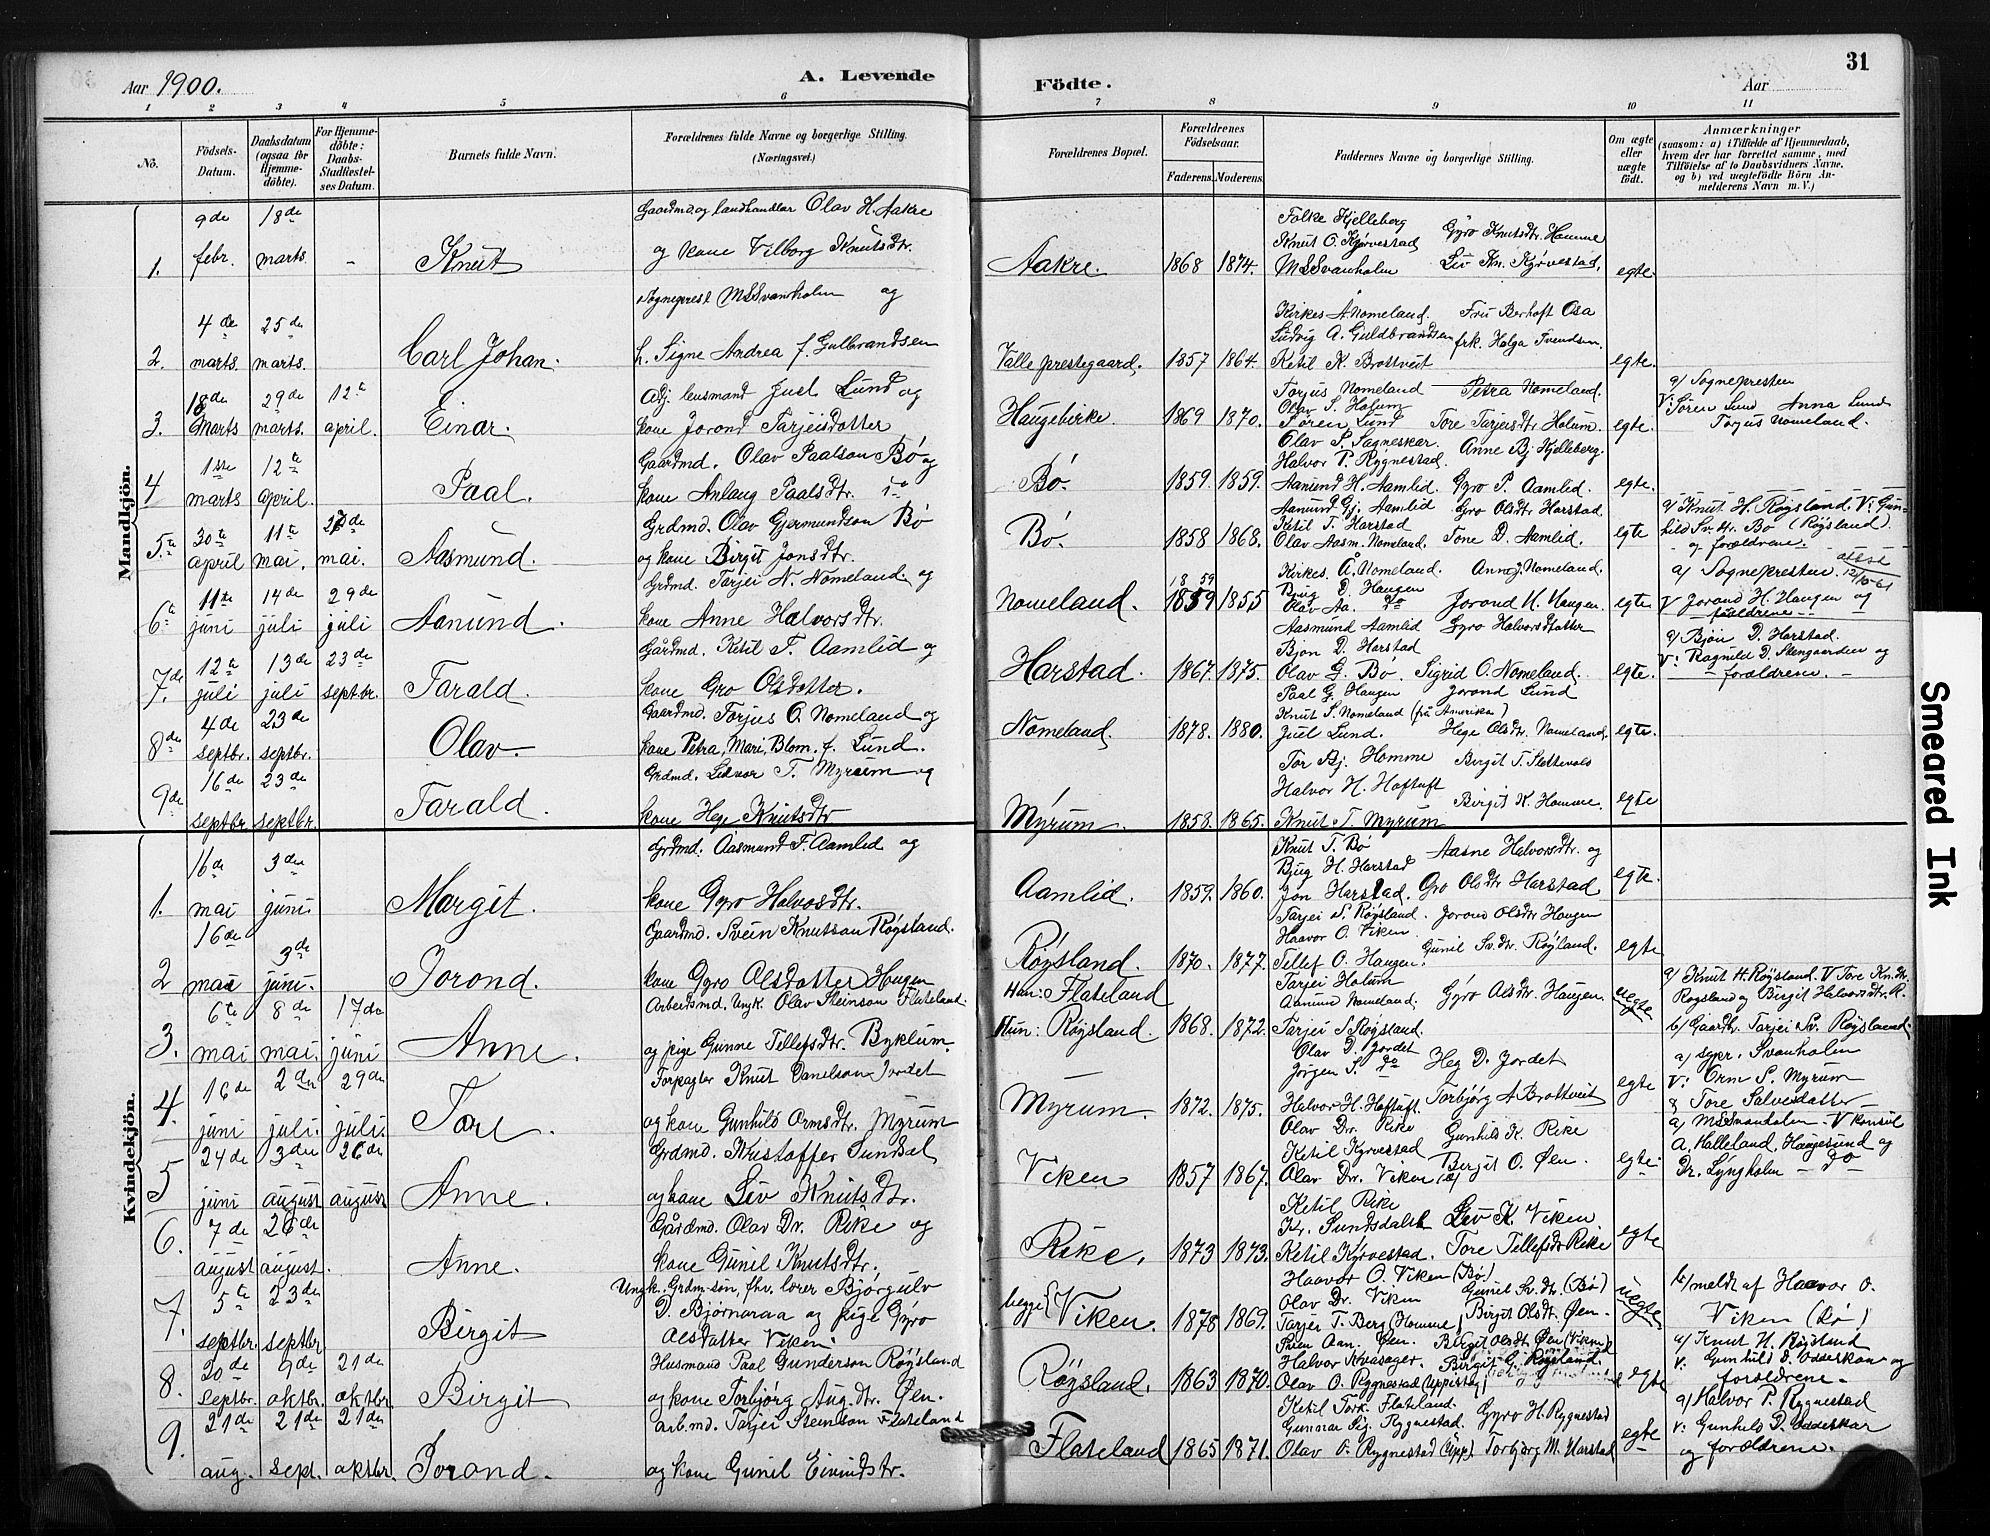 31
Aar 1900.
A. Levende
Födte.
Aar
1 2 3 4 5 6 7 8 9 10 11
No.
Födsels-Datum.
Daabsdatum (ogsaa for Hjemme-döbte).
For Hjemme-döbte: Daabs-Stadfæstel-ses Datum.
Barnets fulde Navn.
Forældrenes fulde Navne og borgerlige Stilling. (Næringsvei.)
Forældrenes Bopæl.
Forældrenes Födselsaar.
Faderens. Moderens.
Faddernes Navne og borgerlige Stilling.
Om ægte eller uægte födt.
Anmærkninger
(saasom: a) i Tilfælde af Hjemmedaab,
hvem der har forrettet samme, med
Tilföielse af to Daabsvidners Navne,
og b) ved uegtefödte Börn An-
melderens Navn m. V.)
Mandkjön.
1. 9de febr. 18de marts. - Knut
Gaardmd. og landhandler Olav H. Aakre
og kone Vilborg Knutsdtr.
Aakre. 1868 1874.
Folke Kjelleberg Gyro Knutsdtr. Homme
Knut O. Kjørvestad
MSSvanholm Liv Kn. Kjørvestad,
egte.
2. 4de marts. 25de marts. Carl Johan.
Sogneprest MSSvanholm og
h. Signe Andrea f. Gulbrandsen
Valle prestegaard. 1857 1864.
Kirkes A. Nomeland. Fru Berhoft Osa
Ludvig A. Guldbrandsen frk. Helga Svendsen.
Ketil K. Brottveit
egte.
3. 18de marts 29de marts. 12te april. Einar.
Adj. lensmand Juel Lund og
kone Jorond Tarjeisdotter
Haugebirke. 1869 1870.
Torjus Nomeland Petra Nomeland.
Olav S. Holum
Søren Lund Tore Tarjeisdtr Holum.
egte.
a/ Sognepresten
V: Søren Lund Anna Lund
Torjus Nomeland.
4 1ste marts 12te april. Paal.
Gaardmd. Olav Paalson Bø og
kone Anlaug Paalsdtr.
Bø. 1859. 1859.
Olav P. Sagneskar Anne Bj. Kjelleberg.
Halvor P. Rygnestad.
Aanund H. Aamlid. Gyro P. Aamlid.
egte.
5te 30te april 11te mai. mai. Aasmund.
Grdmd. Olav Gjermundson Bø
og kone Birgit Jonsdtr.
Bø. 1858 1868.
Aanund Gj. Aamlid Gro Olsdtr Harstad.
Ketil T. Harstad
Olav Aasm. Nomeland. Tone D. Aamlid.
egte
a/ Knut H. Røysland. V: Gun-
hild Sv.dtr. Bø (Røysland)
og foreldrene.
attst 12/10-61
6te 11te juni 14de juli 29de juli Aanund.
Grdmd. Tarjei N. Nomeland og
kone Anne Halvorsdtr.
Nomeland. 1859 1855
Kirkes. Å. Nomeland. Anne J. Nomeland.
Bjug D. Haugen
Olav Aa. do Jorond H. Haugen.
egte
a/ Sognepresten.
V Jorond H. Haugen og
foreldrene -
7de 12te juli 13de juli 23de septbr. Tarald.
Gårdmd. Ketil T. Aamlid og
kone Gro Olsdotter.
Harstad. 1867. 1875.
Aasmund Aamlid Gyro Halvorsdotter
Bjon D. Harstad
Olav G. Bø. Sigrid O. Nomeland.
egte.
a/ Bjøn D. Harstad.
V: Ragnild D. Stengaarden og
- foreldrene. -
8de 4de septbr. 23de septbr. Olav
Gaardmd. Torjus O. Nomeland og
kone Petra, Mari, Blom. f. Lund.
Nomeland. 1878. 1880.
Paal G. Haugen Jorond Lund
Knut S. Nomeland (frå Amerika)
Juel Lund. Hege Olsdtr. Nomeland.
egte.
9de 16de septbr. 23de septbr. Tarald
Grdmd. Leidvor T. Myrum og
kone Heg Knutsdtr
Myrum. 1858. 1865.
Tor Bj. Homme Birgit T. Flottevols
Halvor H. Hoftuft
Knut T. Myrum Birgit K. Homme.
egte
Kvindekjön.
1. 16de mai 3die juni. Margit.
Grdmd. Aasmund F. Aamlid og
kone Gyro Halvorsdtr.
Aamlid. 1859. 1860.
Knut T. Bø Aasne Halvorsdtr. og
Bjug H. Harstad
Jon Harstad. Gro Olsdtr Harstad
egte.
2 16de mai 3de juni. Jorond.
Gaardmd. Svein Knutson Røysland.
kone Gyro Olsdotter Haugen
Røysland. 1870. 1877.
Tarjei S. Røysland. Jorond Olsdtr Haugen
Haavor O. Viken.
Tellef O. Haugen. Gunil Sv.dtr. Røyland.
egte
3. 6te mai 8de mai. 17de juni Anne.
Arbeidsmd. Ungk. Olav Steinson Flateland.
og pige Gunne Tellefsdtr. Byklum.
Han: Flateland
Hun: Røysland. 1868. 1872.
Tarjei Holum
Aanund Nomeland. Gyro Olsdtr. Haugen.
Tarjei S Røysland.
uegte
a/ Knut H. Røysland. V Tore Kn.dtr.
Røgsland og Birgit Halvorsdtr. R.
b/ Gaardbr. Tarjei Sv. Røysland.
4. 16de juni 2den juli. 29de juli. Tore.
Forpagter Knut Danelson Jordet
og kone Gunhild Ormsdtr. Myrum
Myrum. 1872. 1875.
Olav D. Jordet Heg D. Jordet
Jørgen S. do
Halvor H. Hoftuft. Torbjørg A Brottveit
egte
a/ sgpr. Svanholm
V: Orm S. Myrum
& Tore Salvesdatter
5 24de juni 3die august 26de august Anne.
Grdmd. Kristoffer Sundsal
og kone Liv Knutsdtr.
Viken 1857 1867.
Olav Dr. Rike Gunhild K. Rike
Ketil Kyrvestad
Olav Dr. Viken Birgit O. Øen.
egte.
V konsul
A. Halleland, Haugesund og
Dr. Lyngholm - do
6. 7de august 26de august. Anne.
Gårdmd. Olav Dr. Rike og
kone Gunil Knutsdtr.
Rike. 1873 1873.
Ketil Rike
Kr. Sundsdalst Liv K. Viken
Ketil Kyrvestad. Tore Tellefsdtr Rike
egte
7. 5te septbr. 23de septbr. Birgit
Ungk. Grdm.søn, fhv. lærer Bjørgulv
D. Bjørnaraa og pige Gyro
Olsdatter Viken.
begge Viken. 1878 1869.
Haavor O. Viken (Bø) Gunil Sv. dtr. (Bø)
Olav Dr. Viken
Tarjei T. Berg (Homme) Birgit Olsdtr. Øen.
uegte
b/ meldt af Haavor O.
Viken (Bø)
8. 20de septbr. 9de oktbr. 21de oktbr. Birgit
Husmand Paal Gunderson Røysland
og kone Torbjørg Aug.dtr. Øen.
Røysland. 1863 1870.
Svein Aan. Øen. Birgit Olsdtr. Øen (Viken)
Halvor Kvasager. Birgit G. Røysland.
Olav O. Rygnestad (uppistog)
egte
a/ Knut H. Røysland
V. Gunhild D. Uddeskar og
foreldrene -
9. 21de aug. 21de sept. 21de oktbr. Jorond.
Arb.md. Tarjei Steinson Flateland
og kone Gunil Eivindstr.
Flateland 1865 1871.
Ketil Tork. Flateland. Gyro H. Rygnestad
Gunnar Sj. Rygnestad.
Olav O. Rygnestad (upp). Torbjørg M. Harstad
egte
a/ Halvor P. Rygnestad
V: Gunhild D. Uddeskar
og foreldrene.
Smeared Ink